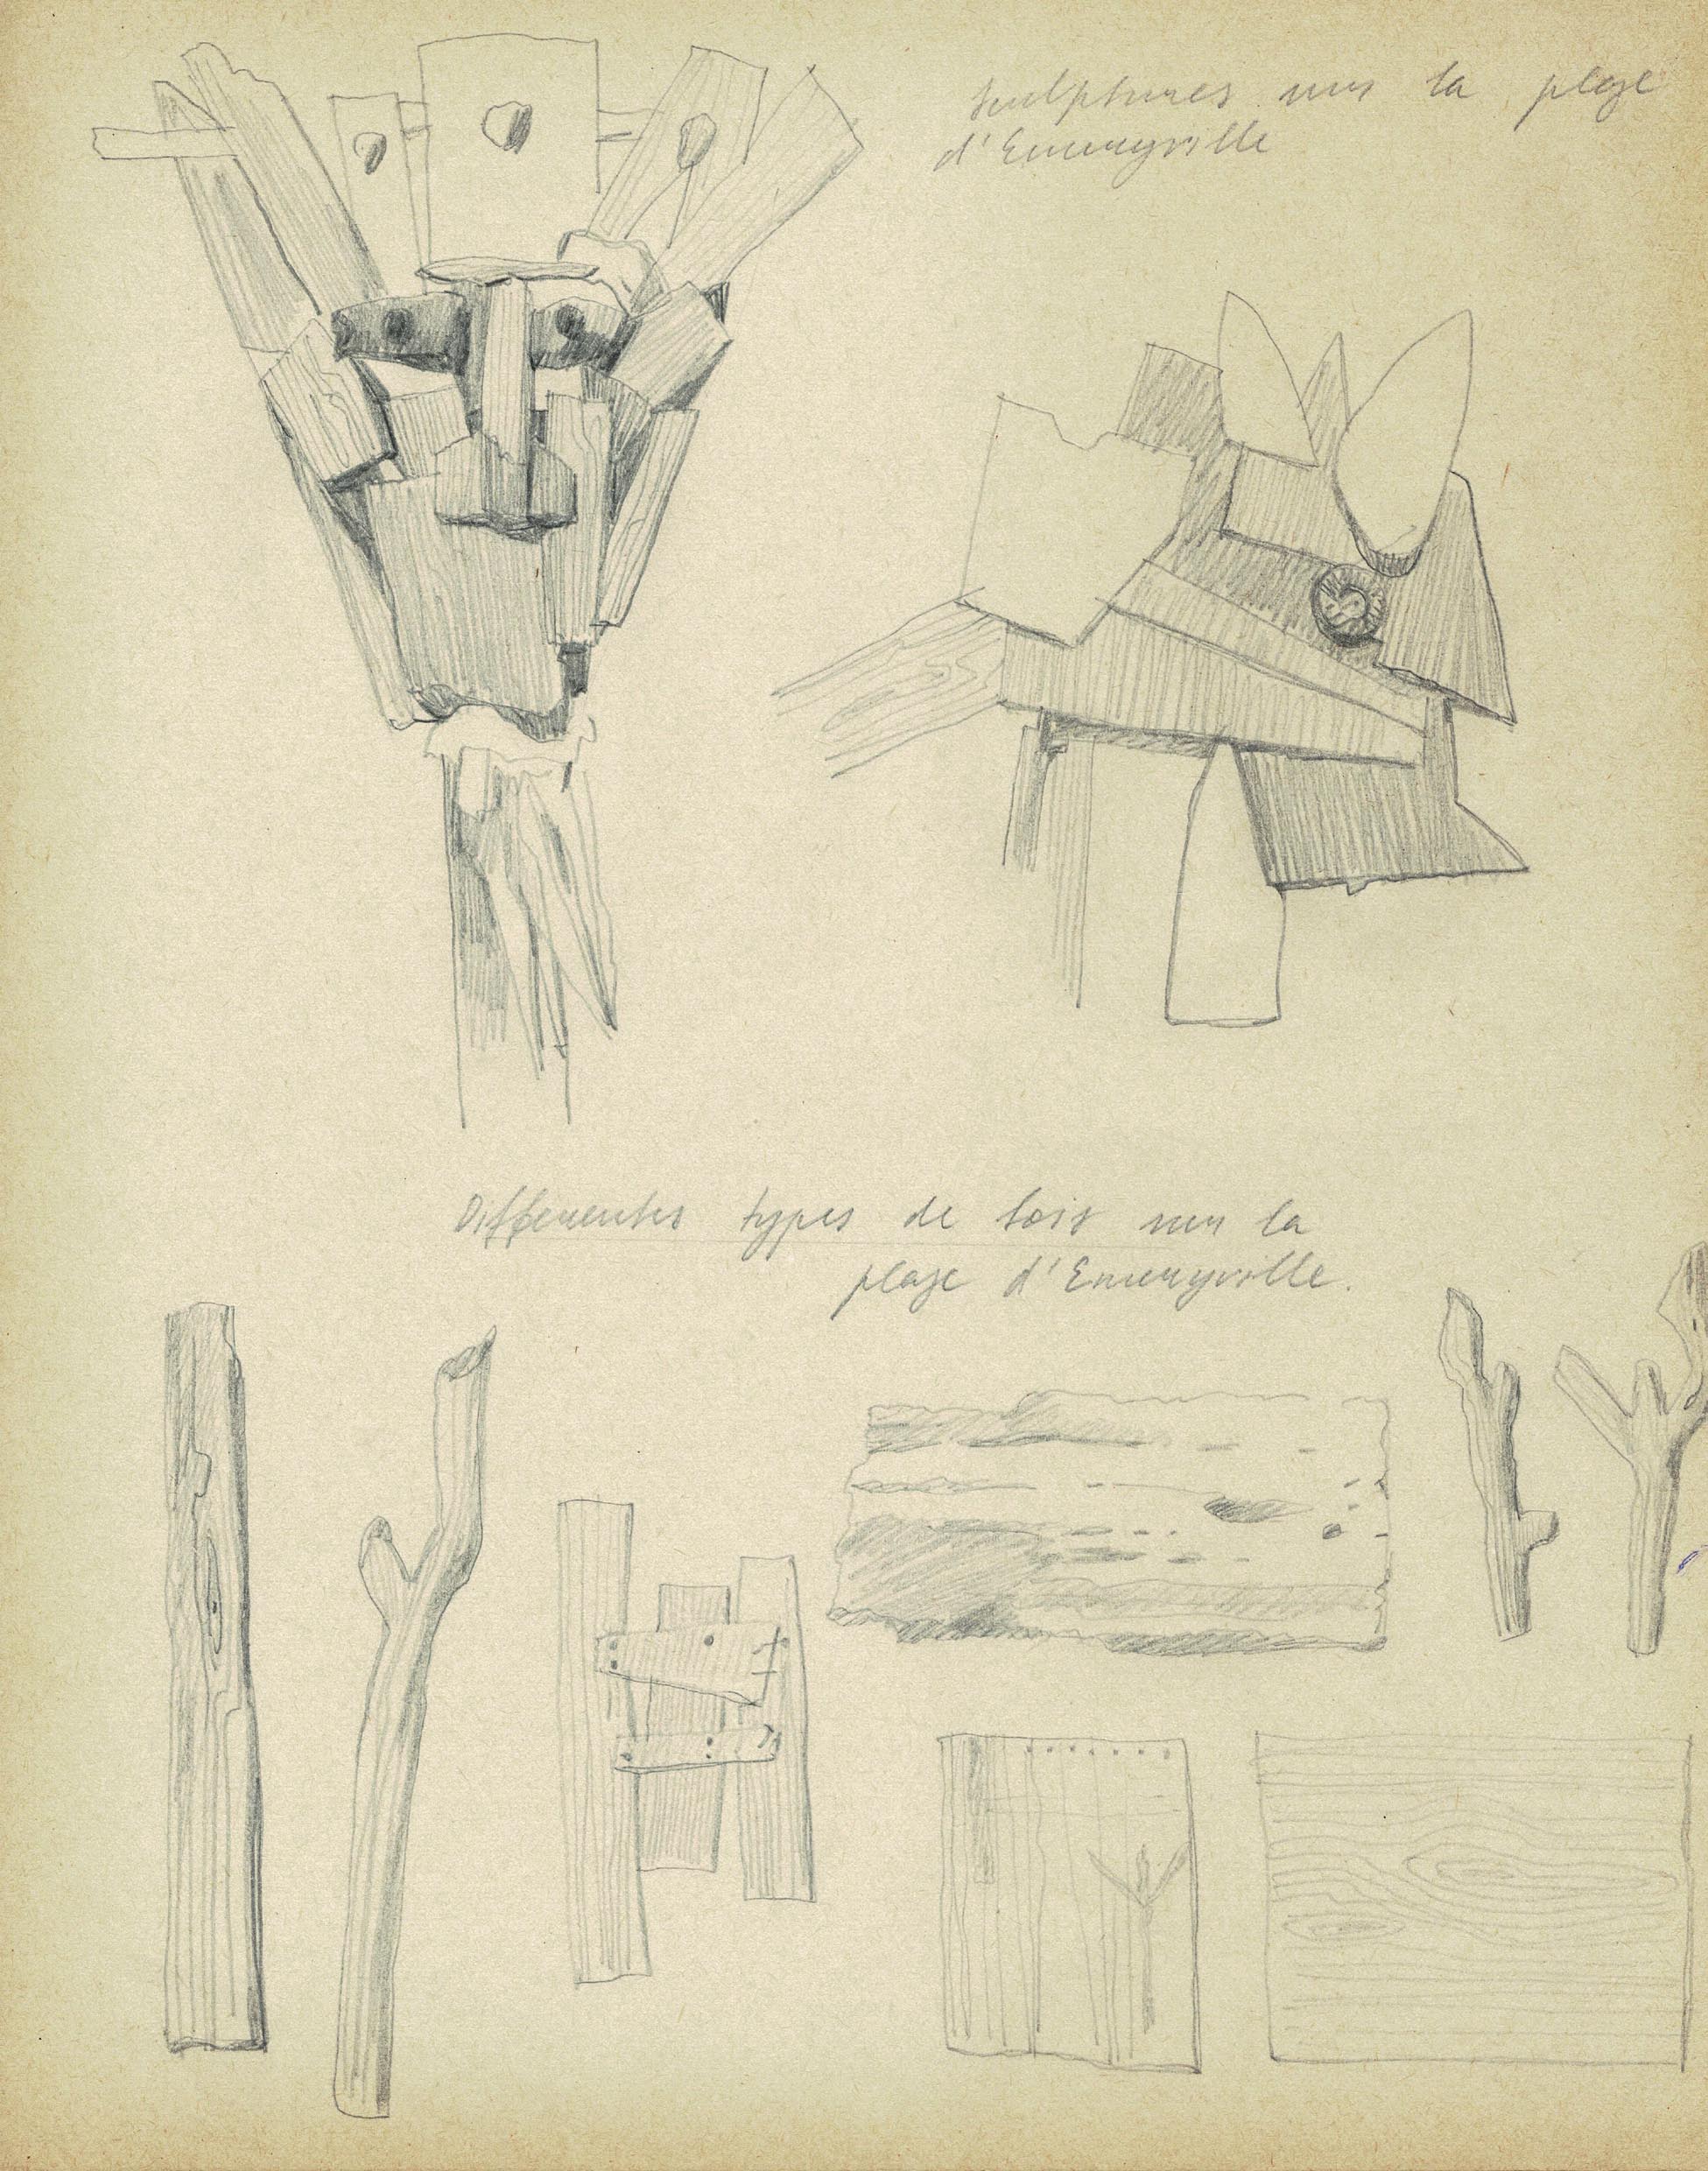 sculptures sur la plage
d'Emeryville
Differentes types de bois sur la
plage d'Emeryville.